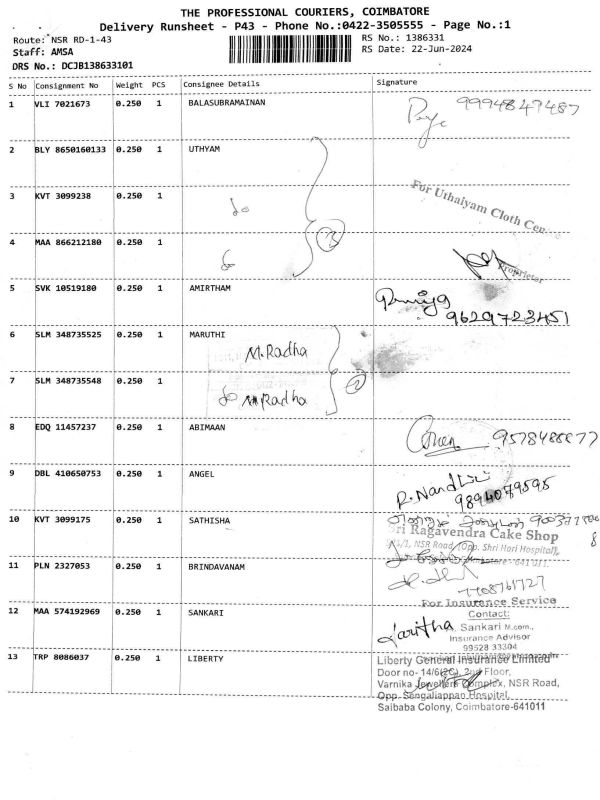 THE PROFESSIONAL COURIERS, COIMBATORE
Delivery Runsheet - P43 - Phone No.:0422-3505555 - Page No.:1
Route: NSR RD-1-43
RS No.: 1386331
Staff: AMSA
RS Date: 22-Jun-2024
DRS No.: DCJB138633101
S No Consignment No Weight PCS Consignee Details Signature
1 VLI 7021673 0.250 1 BALASUBRAMAINAN
9994847487
2 BLY 8650160133 0.250 1 UTHYAM
3 KVT 3099238 0.250 1
For Uthaiyam Cloth
4 MAA 866212180 0.250 1
3
Proprietor
5 SVK 10519180 0.250 1 AMIRTHAM
9629723451
6 SLM 348735525 0.250 1 MARUTHI
M.Radha
7 SLM 348735548 0.250 1
M.Radha
2
8 EDQ 11457237 0.250 1 ABIMAAN
9 DBL 410650753 0.250 1 ANGEL
R.Nandhini
9894079595
10 KVT 3099175 0.250 1 SATHISHA
Sri Ragavendra Cake Shop
NSR Road, (Opp. Shri Hari Hospital),
11 PLN 2327053 0.250 1 BRINDAVANAM
7708761727
For Insurance Service
12 MAA 574192969 0.250 1 SANKARI
Contact:
Sankari M.com.,
Insurance Advisor
99528 33304
13 TRP 8086037 0.250 1 LIBERTY
Liberty General Insurance Limited
Door no- 14/6(2C), 2nd Floor,
Varnika Jewellers Complex, NSR Road,
Opp. Sengaliappan Hospital,
Saibaba Colony, Coimbatore-641011